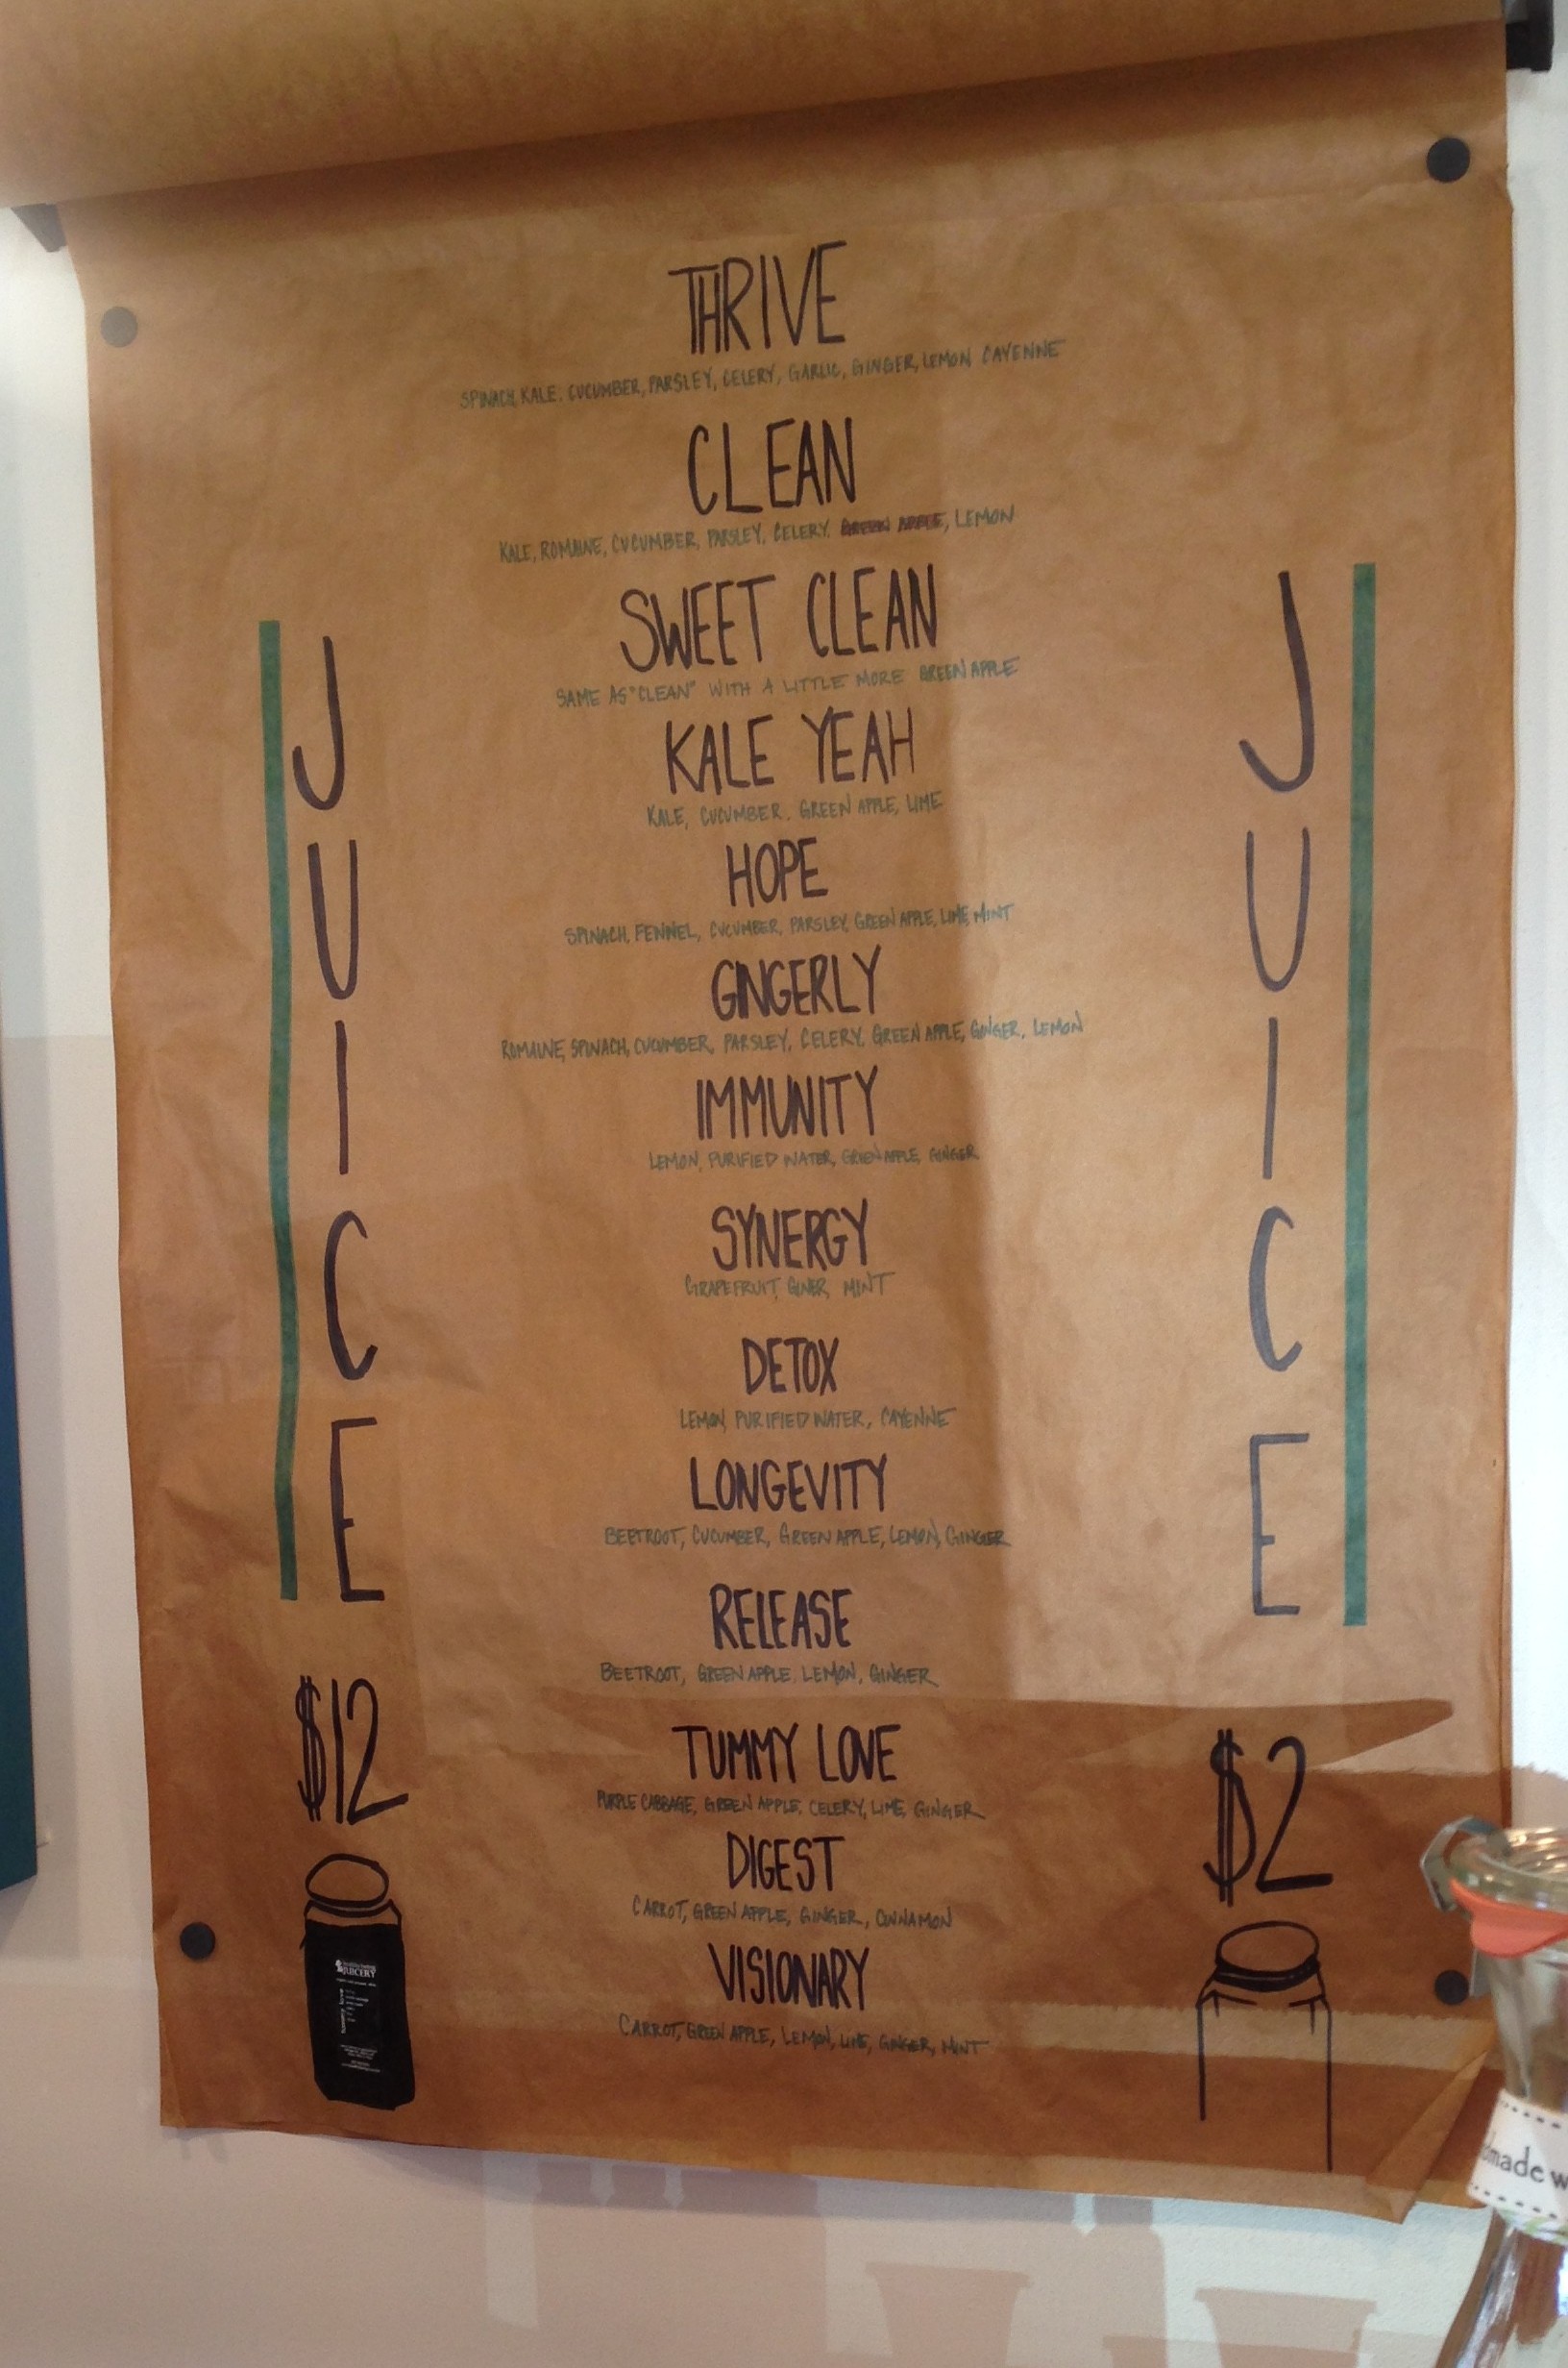 THRIVE
SPINACH, KALE, CUCUMBER, PARSLEY, CELERY, GARLIC, GINGER, LEMON, CAYENNE
CLEAN
KALE, ROMAINE, CUCUMBER, PARSLEY, CELERY, GREEN APPLE, LEMON
SWEET CLEAN
SAME AS "CLEAN" WITH A LITTLE MORE GREEN APPLE
KALE YEAH
KALE, CUCUMBER, GREEN APPLE, LIME
HOPE
SPINACH, FENNEL, CUCUMBER, PARSLEY, GREEN APPLE, LIME, MINT
GINGERLY
ROMAINE, SPINACH, CUCUMBER, PARSLEY, CELERY, GREEN APPLE, GINGER, LEMON
IMMUNITY
LEMON, PURIFIED WATER, GREEN APPLE, GINGER
SYNERGY
GRAPEFRUIT, GINER, MINT
DETOX
LEMON, PURIFIED WATER, CAYENNE
LONGEVITY
BEETROOT, CUCUMBER, GREEN APPLE, LEMON, GINGER
RELEASE
BEETROOT, GREEN APPLE, LEMON, GINGER
TUMMY LOVE
PURPLE CABBAGE, GREEN APPLE, CELERY, LIME, GINGER
DIGEST
CARROT, GREEN APPLE, GINGER, CINNAMON
VISIONARY
CARROT, GREEN APPLE, LEMON, LIME, GINGER, MINT
JUICE
$12
JUICERY
tummy love
JUICE
$2
made w